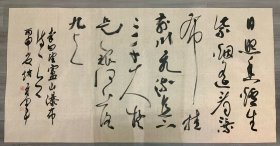 日照香爐生
紫烟遥看瀑
布挂
前川飛流直下
三千尺疑
是銀河落
九天
李白望廬山瀑布
丙申夏